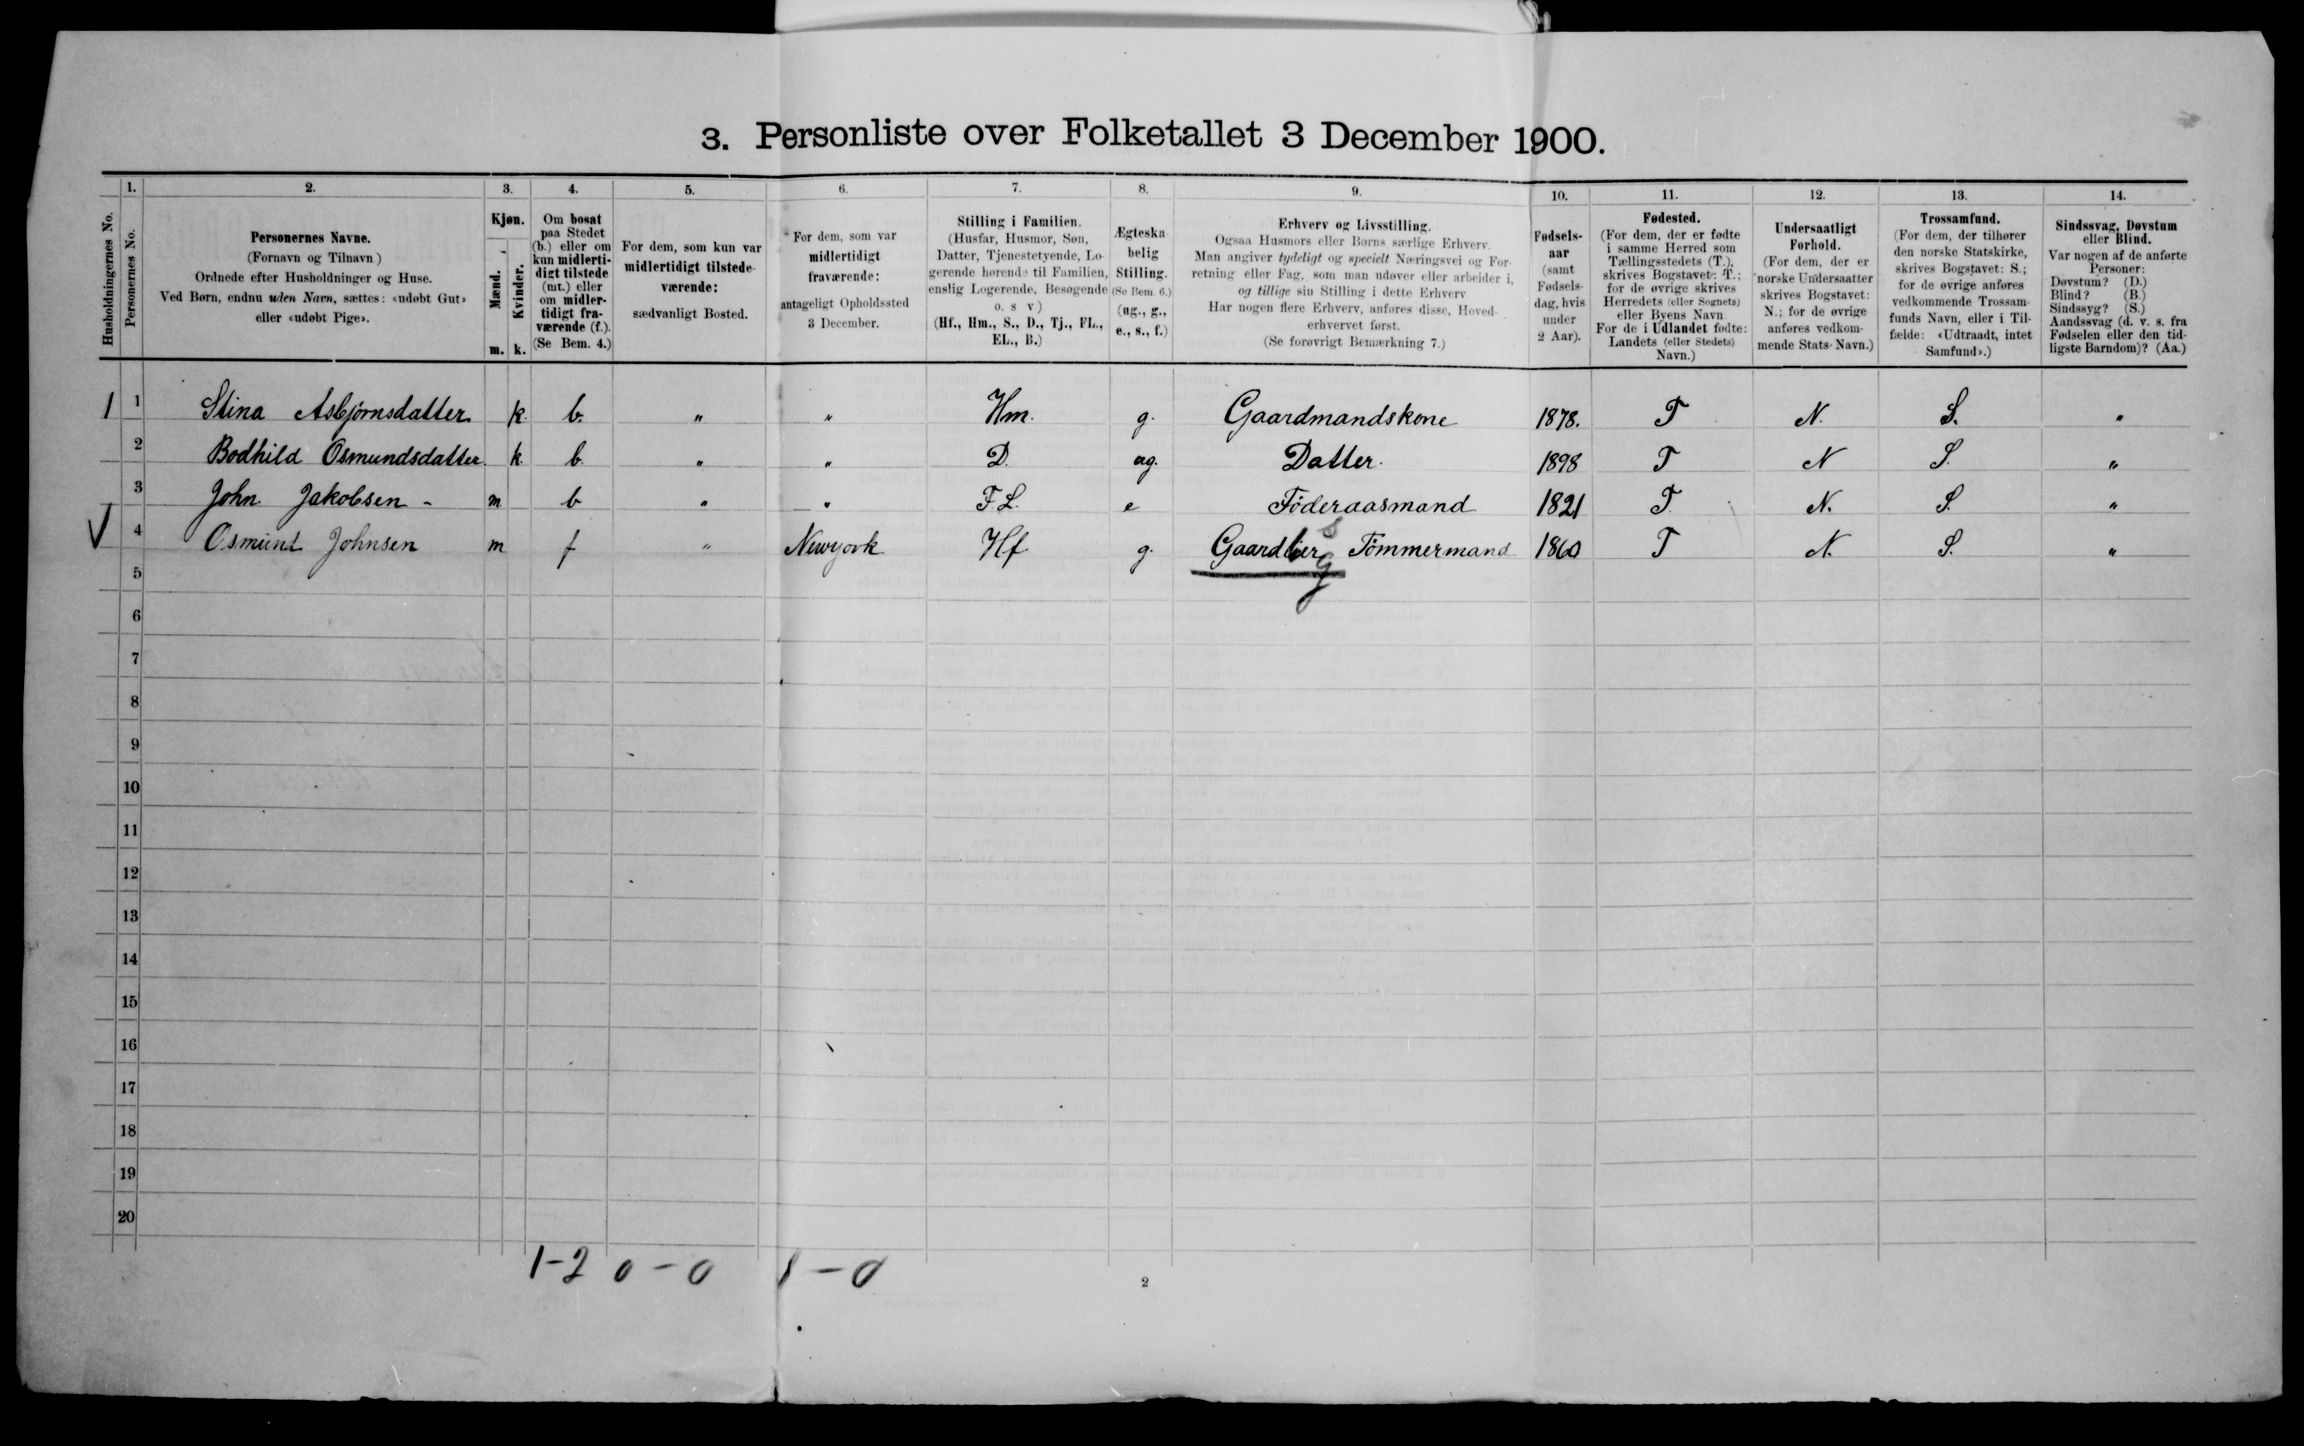 3. Personliste over Folketallet 3 December 1900.
Husholdningernes No.
1.
Personernes No.
2.
Personernes Navne.
(Fornavn og Tilnavn)
Ordnede efter Husholdninger og Huse.
Ved Børn, endnu uden Navn, sættes: «udøbt Gut»
eller «udøbt Pige».
3.
Kjøn.
Mænd.
Kvinder.
m. k.
4.
Om bosat
paa Stedet
(b.) eller om
kun midlerti-
digt tilstede
(mt.) eller
om midler-
tidigt fra-
værende (f.).
(Se Bem. 4.)
5.
For dem, som kun var
midlertidigt tilstede-
værende:
sædvanligt Bosted.
6.
For dem, som var
midlertidigt
fraværende:
antageligt Opholdssted
3 December.
7.
Stilling i Familien.
(Husfar, Husmor, Søn,
Datter, Tjenestetyende, Lo-
gerende hørende til Familien,
enslig Logerende, Besøgende
o. s v)
(Hf., Hm., S., D., Tj., FL.,
EL., B.)
8.
Ægteska-
belig
Stilling.
(Se Bem. 6.)
(ug., g.,
e., s., f.)
9.
Erhverv og Livsstilling.
Ogsaa Husmors eller Børns særlige Erhverv.
Man angiver tydeligt og specielt Næringsvei og For-
retning eller Fag, som man udøver eller arbeider i,
og tillige sin Stilling i dette Erhverv
Har nogen flere Erhverv, anføres disse, Hoved-
erhvervet først.
(Se forøvrigt Bemærkning 7.)
10.
Fødsels-
aar
(samt
Fødsels-
dag, hvis
under
2 Aar).
11.
Fødested.
(For dem, der er fødte
i samme Herred som
Tællingsstedets (T.),
skrives Bogstavet: T.;
for de øvrige skrives
Herredets (eller Sognets)
eller Byens Navn
For de i Udlandet fødte:
Landets (eller Stedets)
Navn.)
12.
Undersaatligt
Forhold.
(For dem, der er
norske Undersaatter
skrives Bogstavet:
N.; for de øvrige
anføres vedkom-
mende Stats Navn.)
13.
Trossamfund.
(For dem, der tilhører
den norske Statskirke,
skrives Bogstavet: S.;
for de øvrige anføres
vedkommende Trossam-
funds Navn, eller i Til-
fælde: «Udtraadt, intet
Samfund».)
14.
Sindssvag, Døvstum
eller Blind.
Var nogen af de anførte
Personer:
Døvstum? (D.)
Blind? (B.)
Sindssyg? (S.)
Aandssvag (d. v. s. fra
Fødselen eller den tid-
ligste Barndom)? (Aa.)
1 1 Stina Asbjørnsdatter k b. " " Hm. g. Gaardmandskone 1878. T N. S. "
2 Bodhild Osmundsdatter. k. b. " " D. ug. Datter. 1898 T N S. "
3 John Jakobsen - m b " " F.L. e Föderaasmand 1821 T. N. S. "
V 4 Osmund Johnsen m f " Newyork Hf g. Gaardbrer Tömmermand 1860 T N. S. "
5
6
7
8
9
10
11
12
13
14
15
16
17
18
19
20
1-2 0-0 1-0
2